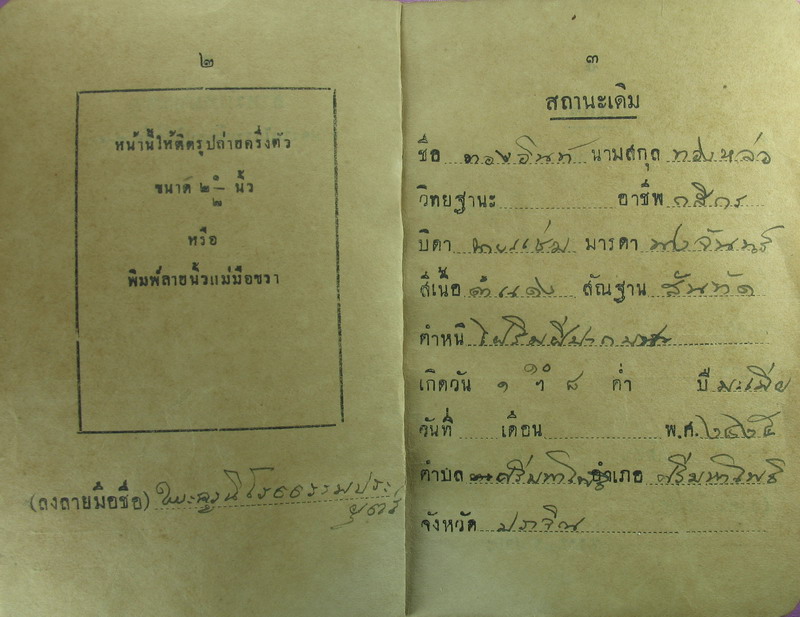 ๒
หน้านี้ให้ติดรูปถ่ายครึ่งตัว
ขนาด ๒ ๑/๒ นิ้ว
หรือ
พิมพ์ลายนิ้วแม่มือขวา
(ลงลายมือชื่อ)
๓
สถานะเดิม
ชื่อ ทองอินท์ นามสกุล ทองหล่อ
วิทยฐานะ อาชีพ กสิกร
บิดา นายแช่ม มารดา นางจันทร์
สีเนื้อ ดำแดง สัณฐาน สันทัด
ตำหนิ
เกิดวัน ๑ ๑๐ ฯ ๘ ค่ำ ปี มะเมีย
วันที่ เดือน พ.ศ. ๒๔๒๕
ตำบล ศรีมหาโพธิ อำเภอ ศรีมหาโพธิ
จังหวัด ปราจิณ